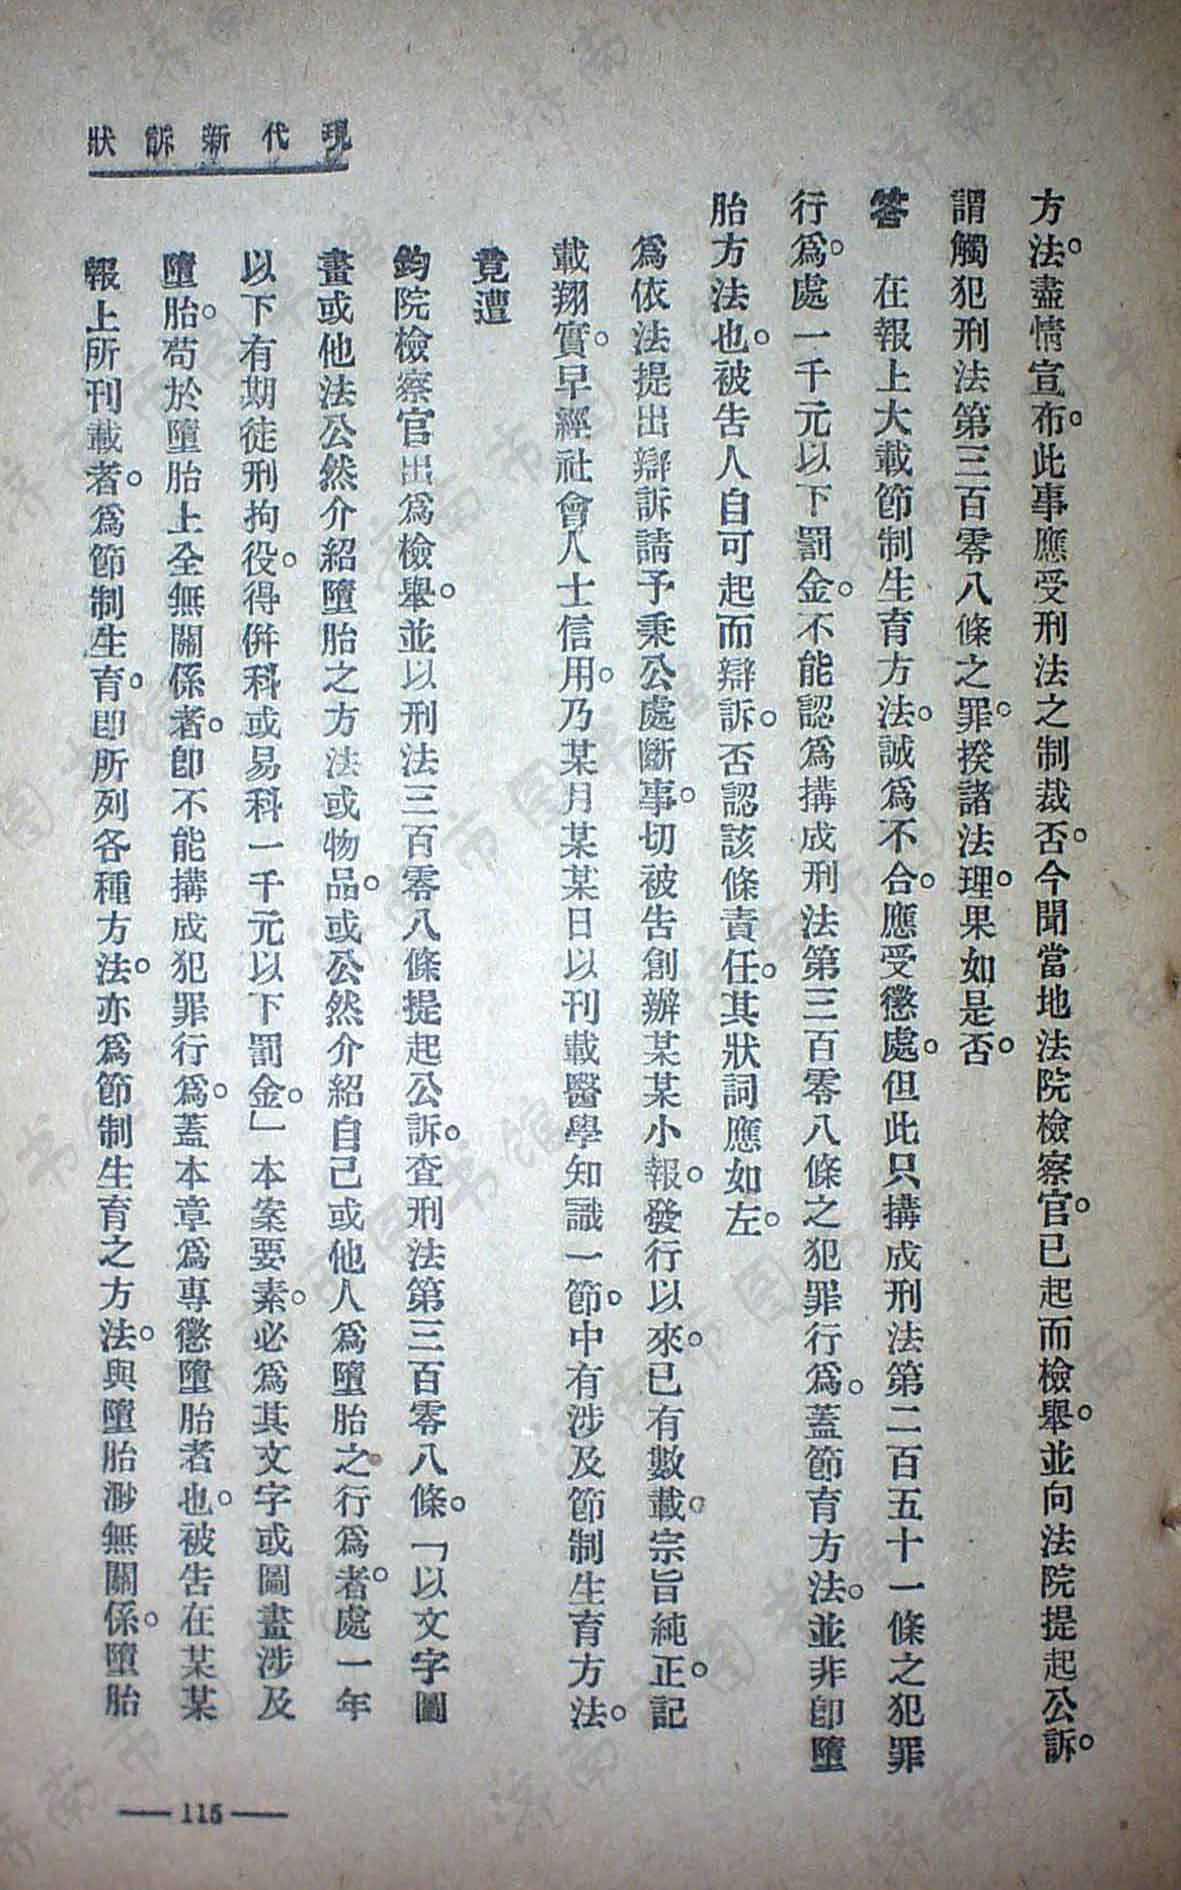 現代新訴狀
方法。盡情宣布。此事應受刑法之制裁否。今聞當地法院檢察官。已起而檢舉。並向法院提起公訴。
謂觸犯刑法第三百零八條之罪。揆諸法理。果如是否。
答　在報上大載節制生育方法。誠爲不合。應受懲處。但此只搆成刑法第二百五十一條之犯罪
行爲。處一千元以下罰金。不能認爲搆成刑法第三百零八條之犯罪行爲。蓋節育方法。並非卽墮
胎方法也。被告人自可起而辯訴。否認該條責任。其狀詞應如左。
爲依法提出辯訴請予秉公處斷事。切被告創辦某某小報。發行以來。已有數載。宗旨純正。記
載翔實。早經社會人士信用。乃某月某某日以刊載醫學知識一節。中有涉及節制生育方法。
竟遭
鈞院檢察官出爲檢舉。並以刑法三百零八條提起公訴。查刑法第三百零八條。「以文字圖
畫或他法公然介紹墮胎之方法或物品。或公然介紹自己或他人爲墮胎之行爲者。處一年
以下有期徒刑拘役。得併科或易科一千元以下罰金。」本案要素。必爲其文字或圖畫涉及
墮胎。苟於墮胎上全無關係者。卽不能搆成犯罪行爲。蓋本章爲專懲墮胎者也。被告在某某
報上所刊載者。爲節制生育。卽所列各種方法。亦爲節制生育之方法。與墮胎渺無關係。墮胎
— 115 —
济南市图书馆